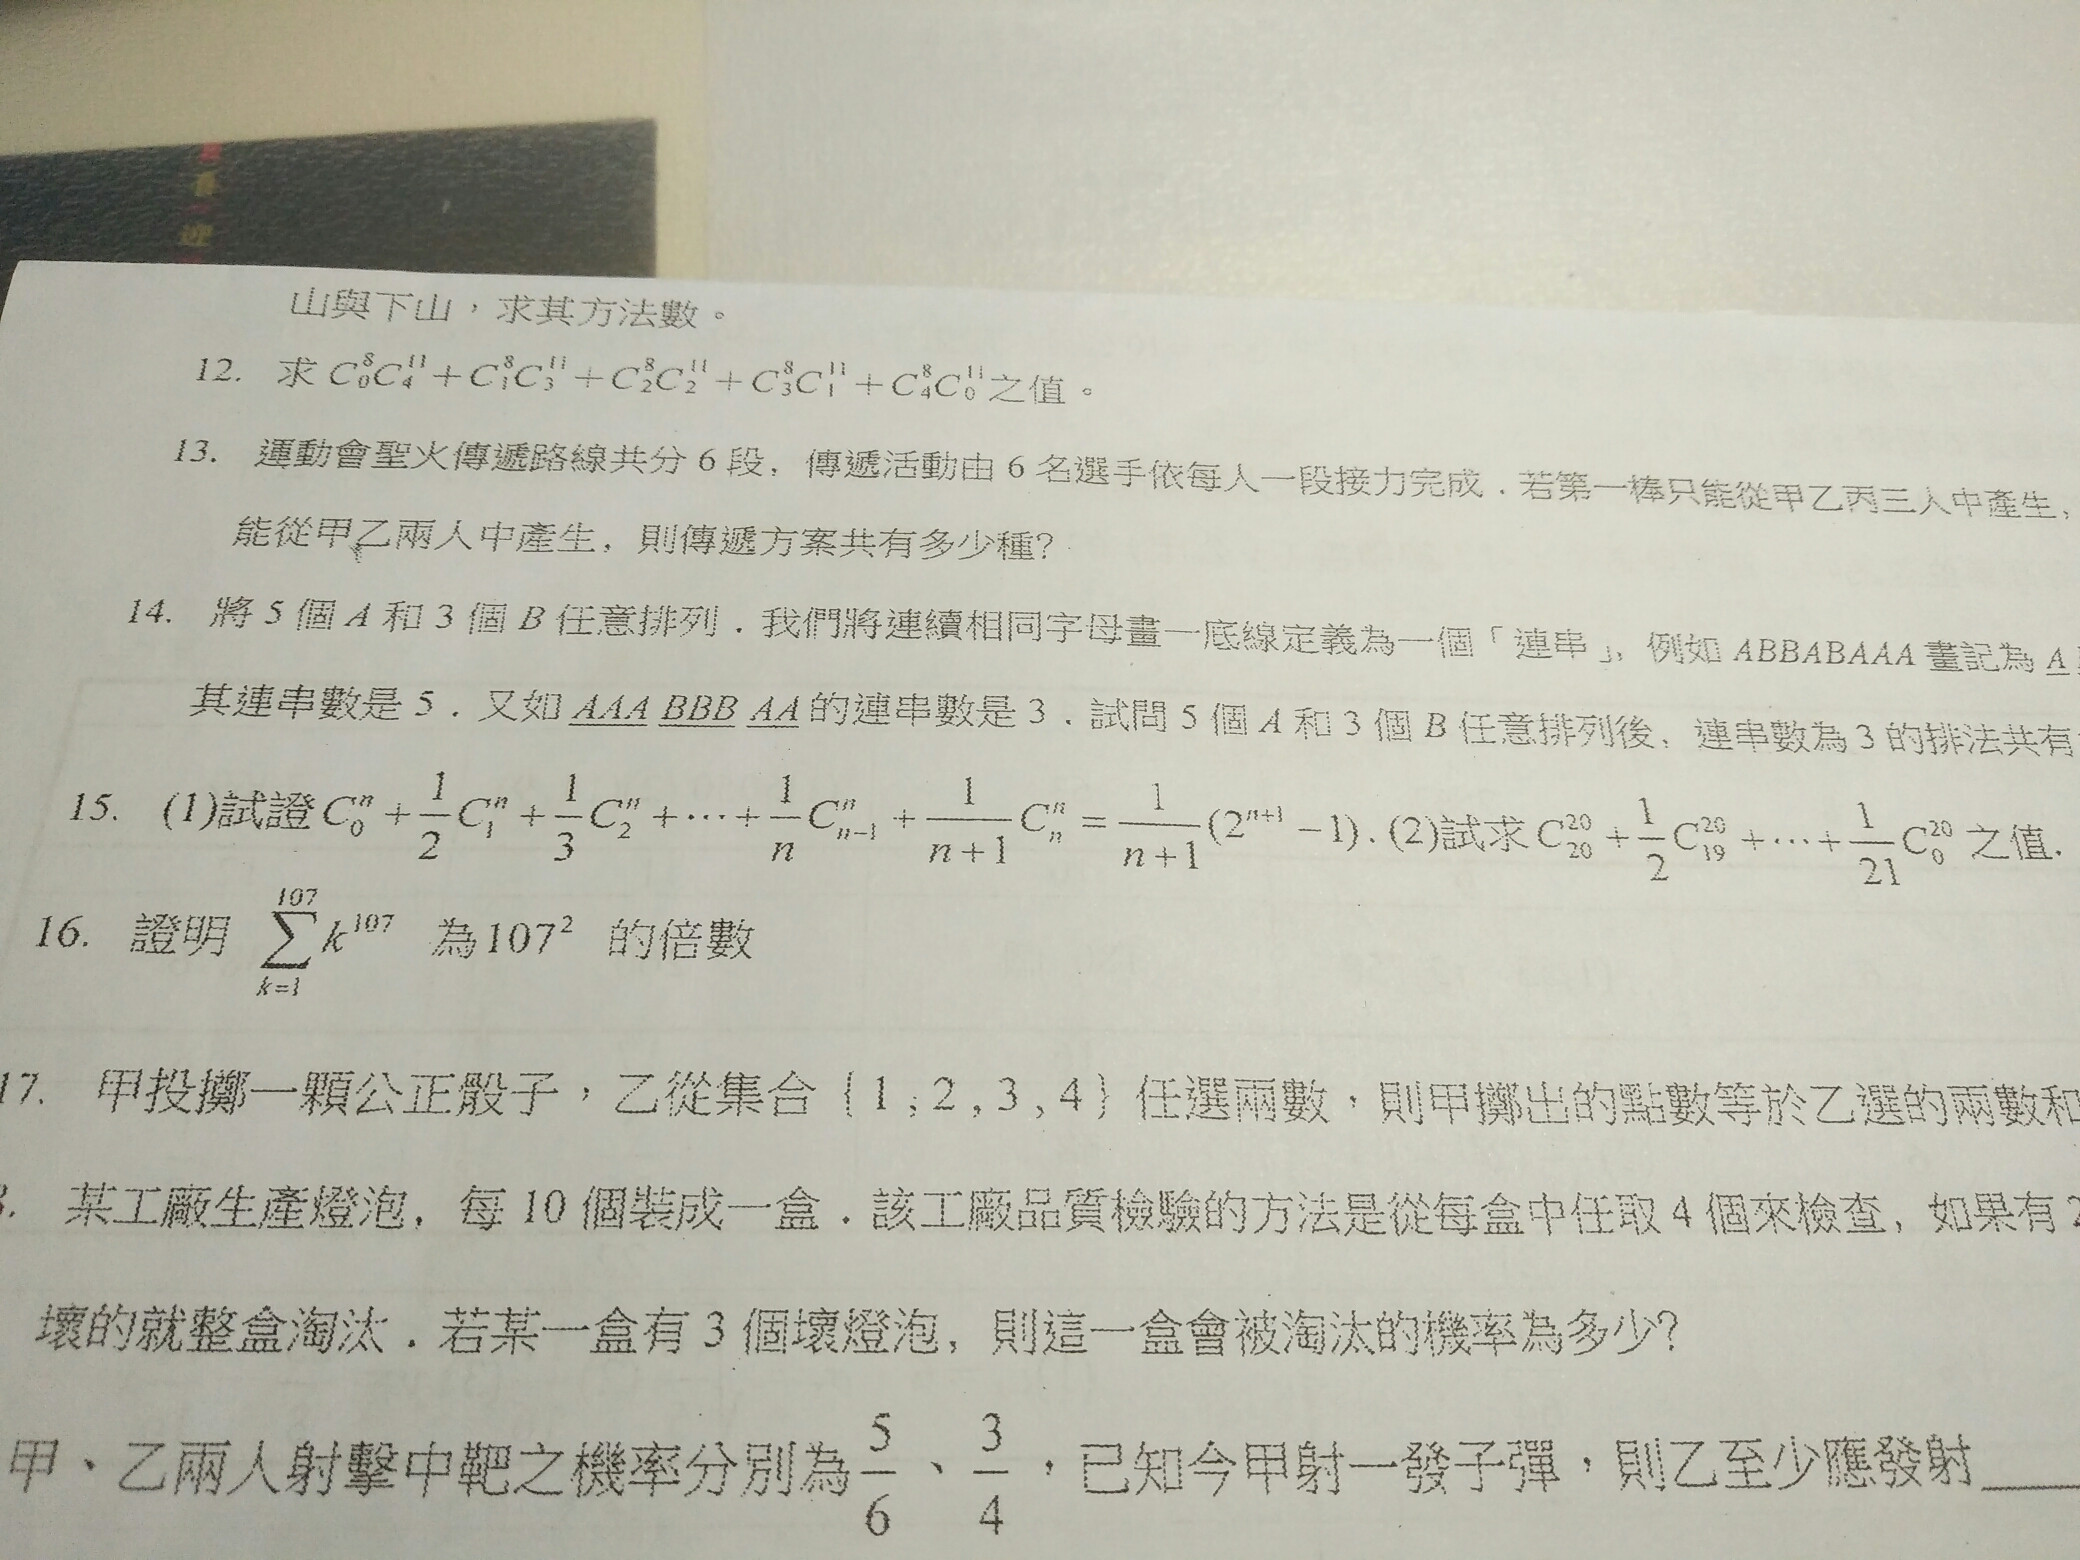 山與下山，求其方法數。
12. 求 C₀⁸C₄¹¹+C₁⁸C₃¹¹+C₂⁸C₂¹¹+C₃⁸C₁¹¹+C₄⁸C₀¹¹之值。
13. 運動會聖火傳遞路線共分 6 段，傳遞活動由 6 名選手依每人一段接力完成．若第一棒只能從甲乙丙三人中產生，
能從甲乙兩人中產生，則傳遞方案共有多少種？
14. 將 5 個 A 和 3 個 B 任意排列．我們將連續相同字母畫一底線定義為一個「連串」，例如 ABBABAAA 畫記為 A
其連串數是 5．又如 AAA BBB AA 的連串數是 3．試問 5 個 A 和 3 個 B 任意排列後，連串數為 3 的排法共有
15. (1)試證 C₀ⁿ + 1/2 C₁ⁿ + 1/3 C₂ⁿ + ⋯ + 1/n Cₙ₋₁ⁿ + 1/(n+1) Cₙⁿ = 1/(n+1) (2ⁿ⁺¹ −1). (2)試求 C₂₀²⁰ + 1/2 C₁₉²⁰ + ⋯ + 1/21 C₀²⁰ 之值.
16. 證明 ∑ₖ₌₁¹⁰⁷ k¹⁰⁷ 為107² 的倍數
17. 甲投擲一顆公正骰子，乙從集合 {1,2,3,4} 任選兩數，則甲擲出的點數等於乙選的兩數和
某工廠生產燈泡，每 10 個裝成一盒．該工廠品質檢驗的方法是從每盒中任取 4 個來檢查，如果有 2
壞的就整盒淘汰．若某一盒有 3 個壞燈泡，則這一盒會被淘汰的機率為多少？
甲、乙兩人射擊中靶之機率分別為 5/6、3/4，已知今甲射一發子彈，則乙至少應發射____